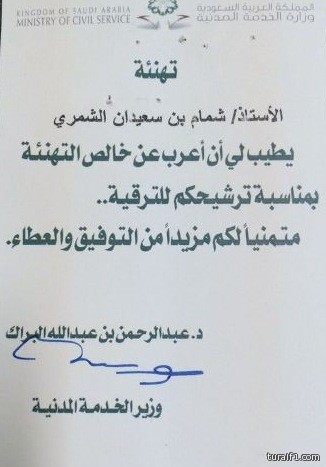 KINGDOM OF SAUDI ARABIA
MINISTRY OF CIVIL SERVICE
المملكة العربية السعودية
وزارة الخدمة المدنية
تهنئة
الأستاذ/ شمام بن سعيدان الشمري
يطيب لي أن أعرب عن خالص التهنئة
بمناسبة ترشيحكم للترقية..
متمنياً لكم مزيداً من التوفيق والعطاء.
د. عبدالرحمن بن عبدالله البراك
وزير الخدمة المدنية
turaif1.com